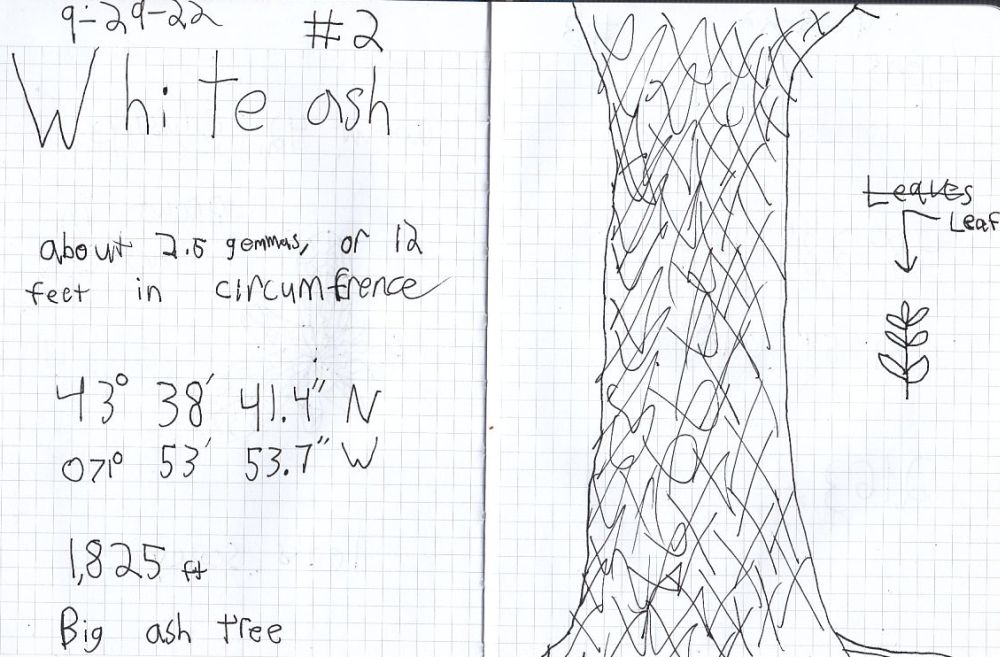 9-29-22 #2
White ash
about 2.5 gemmas, or 12
feet in circumfrence
43° 38' 41.4" N
071° 53' 53.7" W
1,825 ft
Big ash tree
Leaves
Leaf